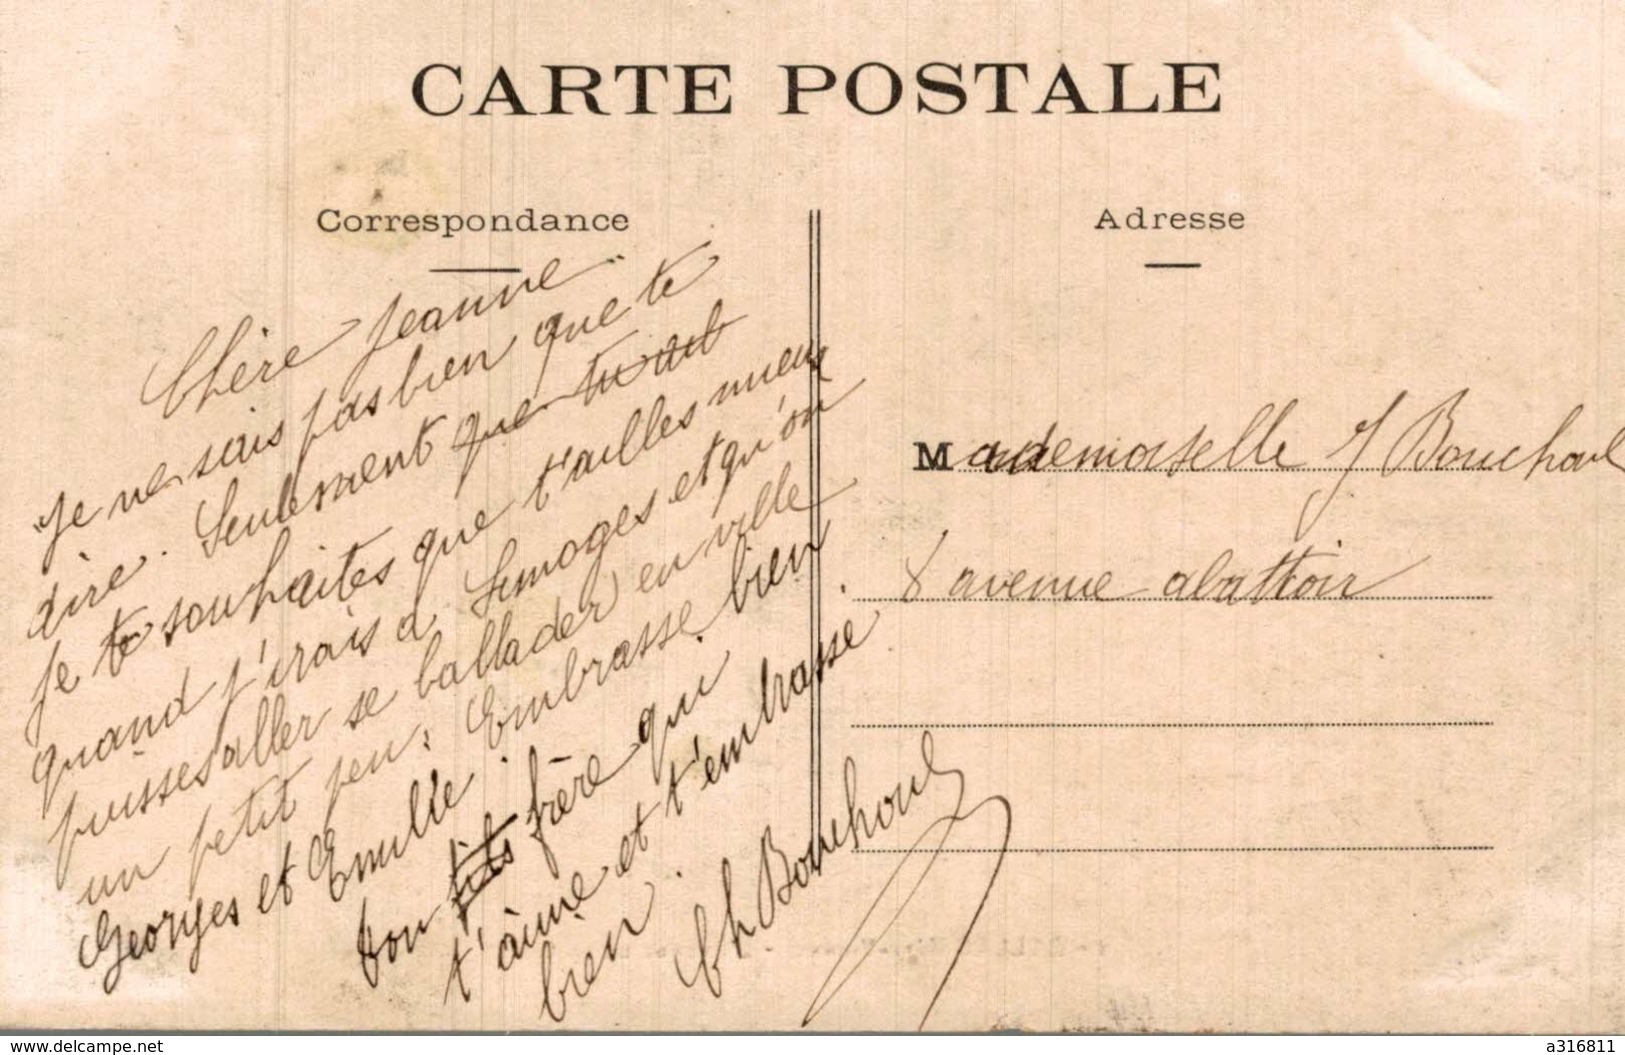 CARTE POSTALE
Correspondance
Chère Jeanne
Je ne sais pas bien que te
dire. Seulement que
Je te souhaites que t'ailles mieux
quand j'irais à Limoges et qu'on
puisses aller se ballader en ville
un petit peu. Embrasse bien
Georges et Emille.
ton fils frère qui
t'aime et t'embrasse
bien.
Ch Bouchoul
Adresse
Mademoiselle J Bouchoul
8 avenue abattoir
www.delcampe.net
a316811